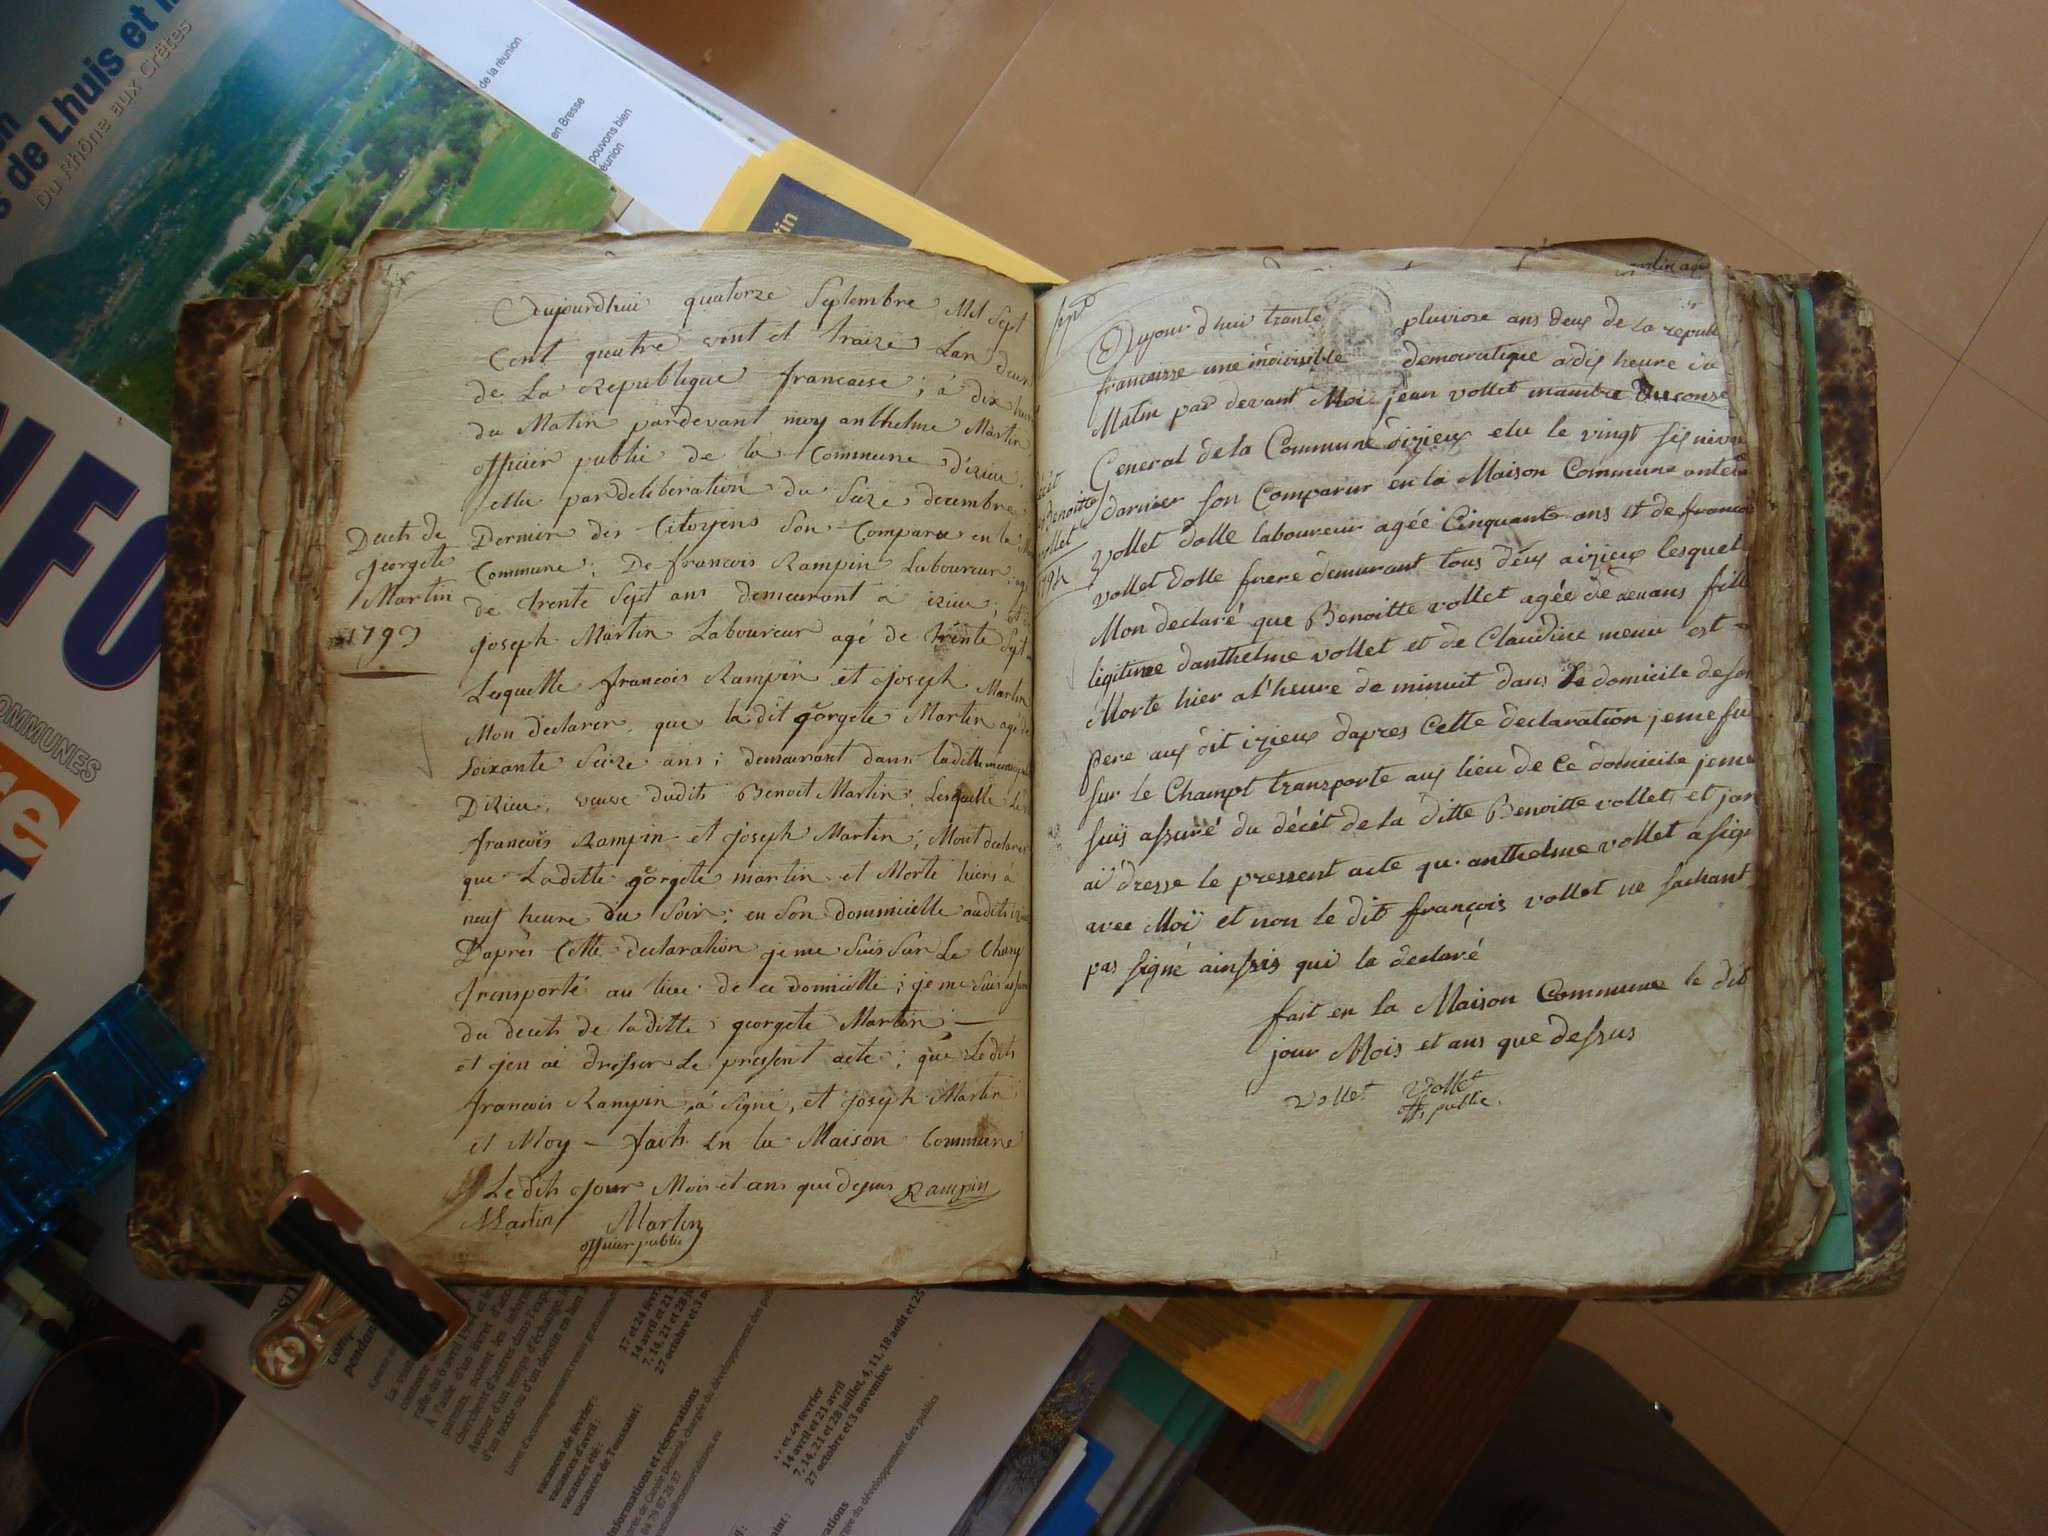 de Lhuis et
Du Rhône aux Crêtes
de la réunion
en Bresse
pouvons bien
réunion
tin
NFO
OMMUNES
Aujourdhui quatorze Septembre Mil Sept
Cent quatre vent et traize Lan deux
de La Republique francaise ; à dix heure
du Matin pardevant moy anthelme Martin
officier public de la Commune d'izieu
ellu par deliberation du Seize decembre
Dernier des Citoyens Son Comparu en la
Commune ; De francois Rampin Laboureur
de trente Sept ans demeurant a izieu ; et
joseph Martin Laboureur agé de trente Sept
Lesquelle francois Rampin et joseph Martin
Mon declarer que la dit georgete Martin agé de
Soixante Seize ans ; demeurant dans laditte
Dizieu, veuve dudits Benoit Martin Lesquelle
francois Rampin et joseph Martin ; Mont declarer
que Laditte georgete martin et Morte hiers à
neuf heure du Soir ; en Son dommicille audits
D'après Cette declaration je me Suis Sur Le Champ
transporté au lieu de ce domicille ; je me Suis
du decets de laditte georgete Martin
et jen ai dresser Le pressent acte ; que Ledits
francois Rampin à Signé, et joseph Martin
et Moy faith En la Maison Commune
Ledits jour Mois et ans que dessus Rampin
Martin Martin
officier public
Decets de
georgete
Martin
1793
Aujour d'hui trante pluviose ans deux de la republ
francaisse une indivisible democratique a dix heure du
Matin par devant Moi jean vollet mambre du conse
General de la Commune dizieux elu le vingt six nivos
darnier son Comparur en la Maison Commune antel
vollet dolle laboureur agée Cinquante ans et de francoi
vollet dolle frere demurant tous deux a izieux lesquel
Mon declaré que Benoitte vollet agée de deux ans fille
legitimee danthelme vollet et de Claudine menu est
Morte hier a l'heure de minuit dans le domicile de son
pere aux dit izieux dapres Cette declaration je me sui
sur le Champt transporte aux lieu de Ce domicile je me
suis assuré du décét de la ditte Benoitte vollet et jan
ai dresse le pressent acte qu. anthelme vollet a signé
avec Moi et non le dit françois vollet ne sachant
pas signé ainssis qui la declaré
fait en la Maison Commune le dit
jour Mois et ans que dessus
vollet vollet
off, public.
Benoitte
vollet
vacances de février :
vacances d'avril :
vacances été :
vacances de Toussaint :
14 avril et 21 avril
27 octobre et 3 novembre
informations et réservations
04 79 87 26 37
14 avril et 21 avril
7, 14, 21 et 28 juillet, 4, 11, 18 août et 25
27 octobre et 3 novembre